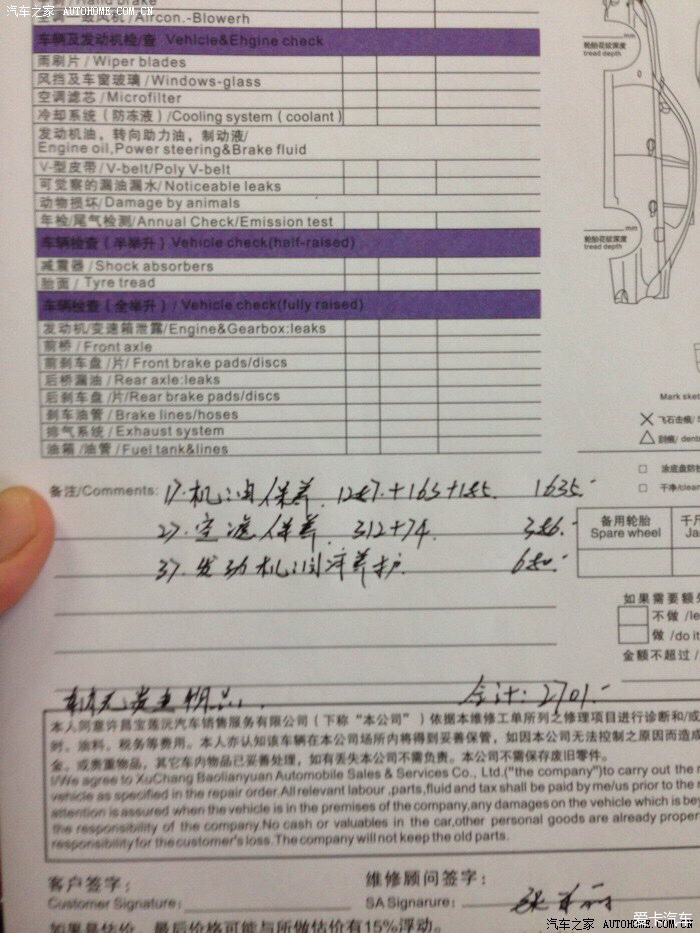 汽车之家 AUTOHOME.COM.CN
/Aircon.-Blowerh
车辆及发动机检/查 Vehicle&Ehgine check
雨刷片/Wiper blades
风挡及车窗玻璃/Windows-glass
空调滤芯/Microfilter
冷却系统(防冻液)/Cooling system(coolant)
发动机油，转向助力油，制动液/
Engine oil,Power steering&Brake fluid
V-型皮带/V-belt/Poly V-belt
可觉察的漏油漏水/Noticeable leaks
动物损坏/Damage by animals
年检/尾气检测/Annual Check/Emission test
车辆检查(半举升) Vehicle check(half-raised)
减震器/Shock absorbers
胎面/Tyre tread
车辆检查(全举升)/Vehicle check(fully raised)
发动机/变速箱泄露/Engine&Gearbox:leaks
前桥/Front axle
前刹车盘/片/Front brake pads/discs
后桥漏油/Rear axle:leaks
后刹车盘/片/Rear brake pads/discs
刹车油管/Brake lines/hoses
排气系统/Exhaust system
油箱/油管/Fuel tank&lines
轮胎花纹深度
tread depth
mm
轮胎花纹深度
tread depth
mm
Mark sket
飞石击痕/
刮痕/dent
涂底盘防
干净/clean
备注/Comments: 1).机油保养. 1287.+163+185. 1635.-
2).空滤保养. 312+74. 386.-
3).发动机润滑养护. 680.-
备用轮胎
Spare wheel
千斤
Ja
如果需要额
不做/le
做/do it
金额不超过/
合计:2701.-
本人同意许昌宝莲沅汽车销售服务有限公司(下称“本公司”)依据本维修工单所列之修理项目进行诊断和/或
时、油料、税务等费用。本人亦认知该车辆在本公司场所内将得到妥善保管，如因本公司无法控制之原因而造成
金、或贵重物品，其它车内物品已妥善处理，如有丢失本公司不需负责。本公司不需保存废旧零件。
I/We agree to XuChang Baolianyuan Automobile Sales & Services Co., Ltd.("the company")to carry out the r
vehicle as specified in the repair order.All relevant labour ,parts,fluid and tax shall be paid by me/us prior to the r
attention is assured when the vehicle is in the premises of the company,any damages on the vehicle which is bey
the responsibility of the company.No cash or valuables in the car,other personal goods are already proper
responsibility for the customer's loss.The company will not keep the old parts.
客户签字:
Customer Signature:
维修顾问签字:
SA Signarure:
如果是估价，最后价格可能与所做估价有15%浮动。
爱卡汽车
汽车之家 AUTOHOME.COM.CN